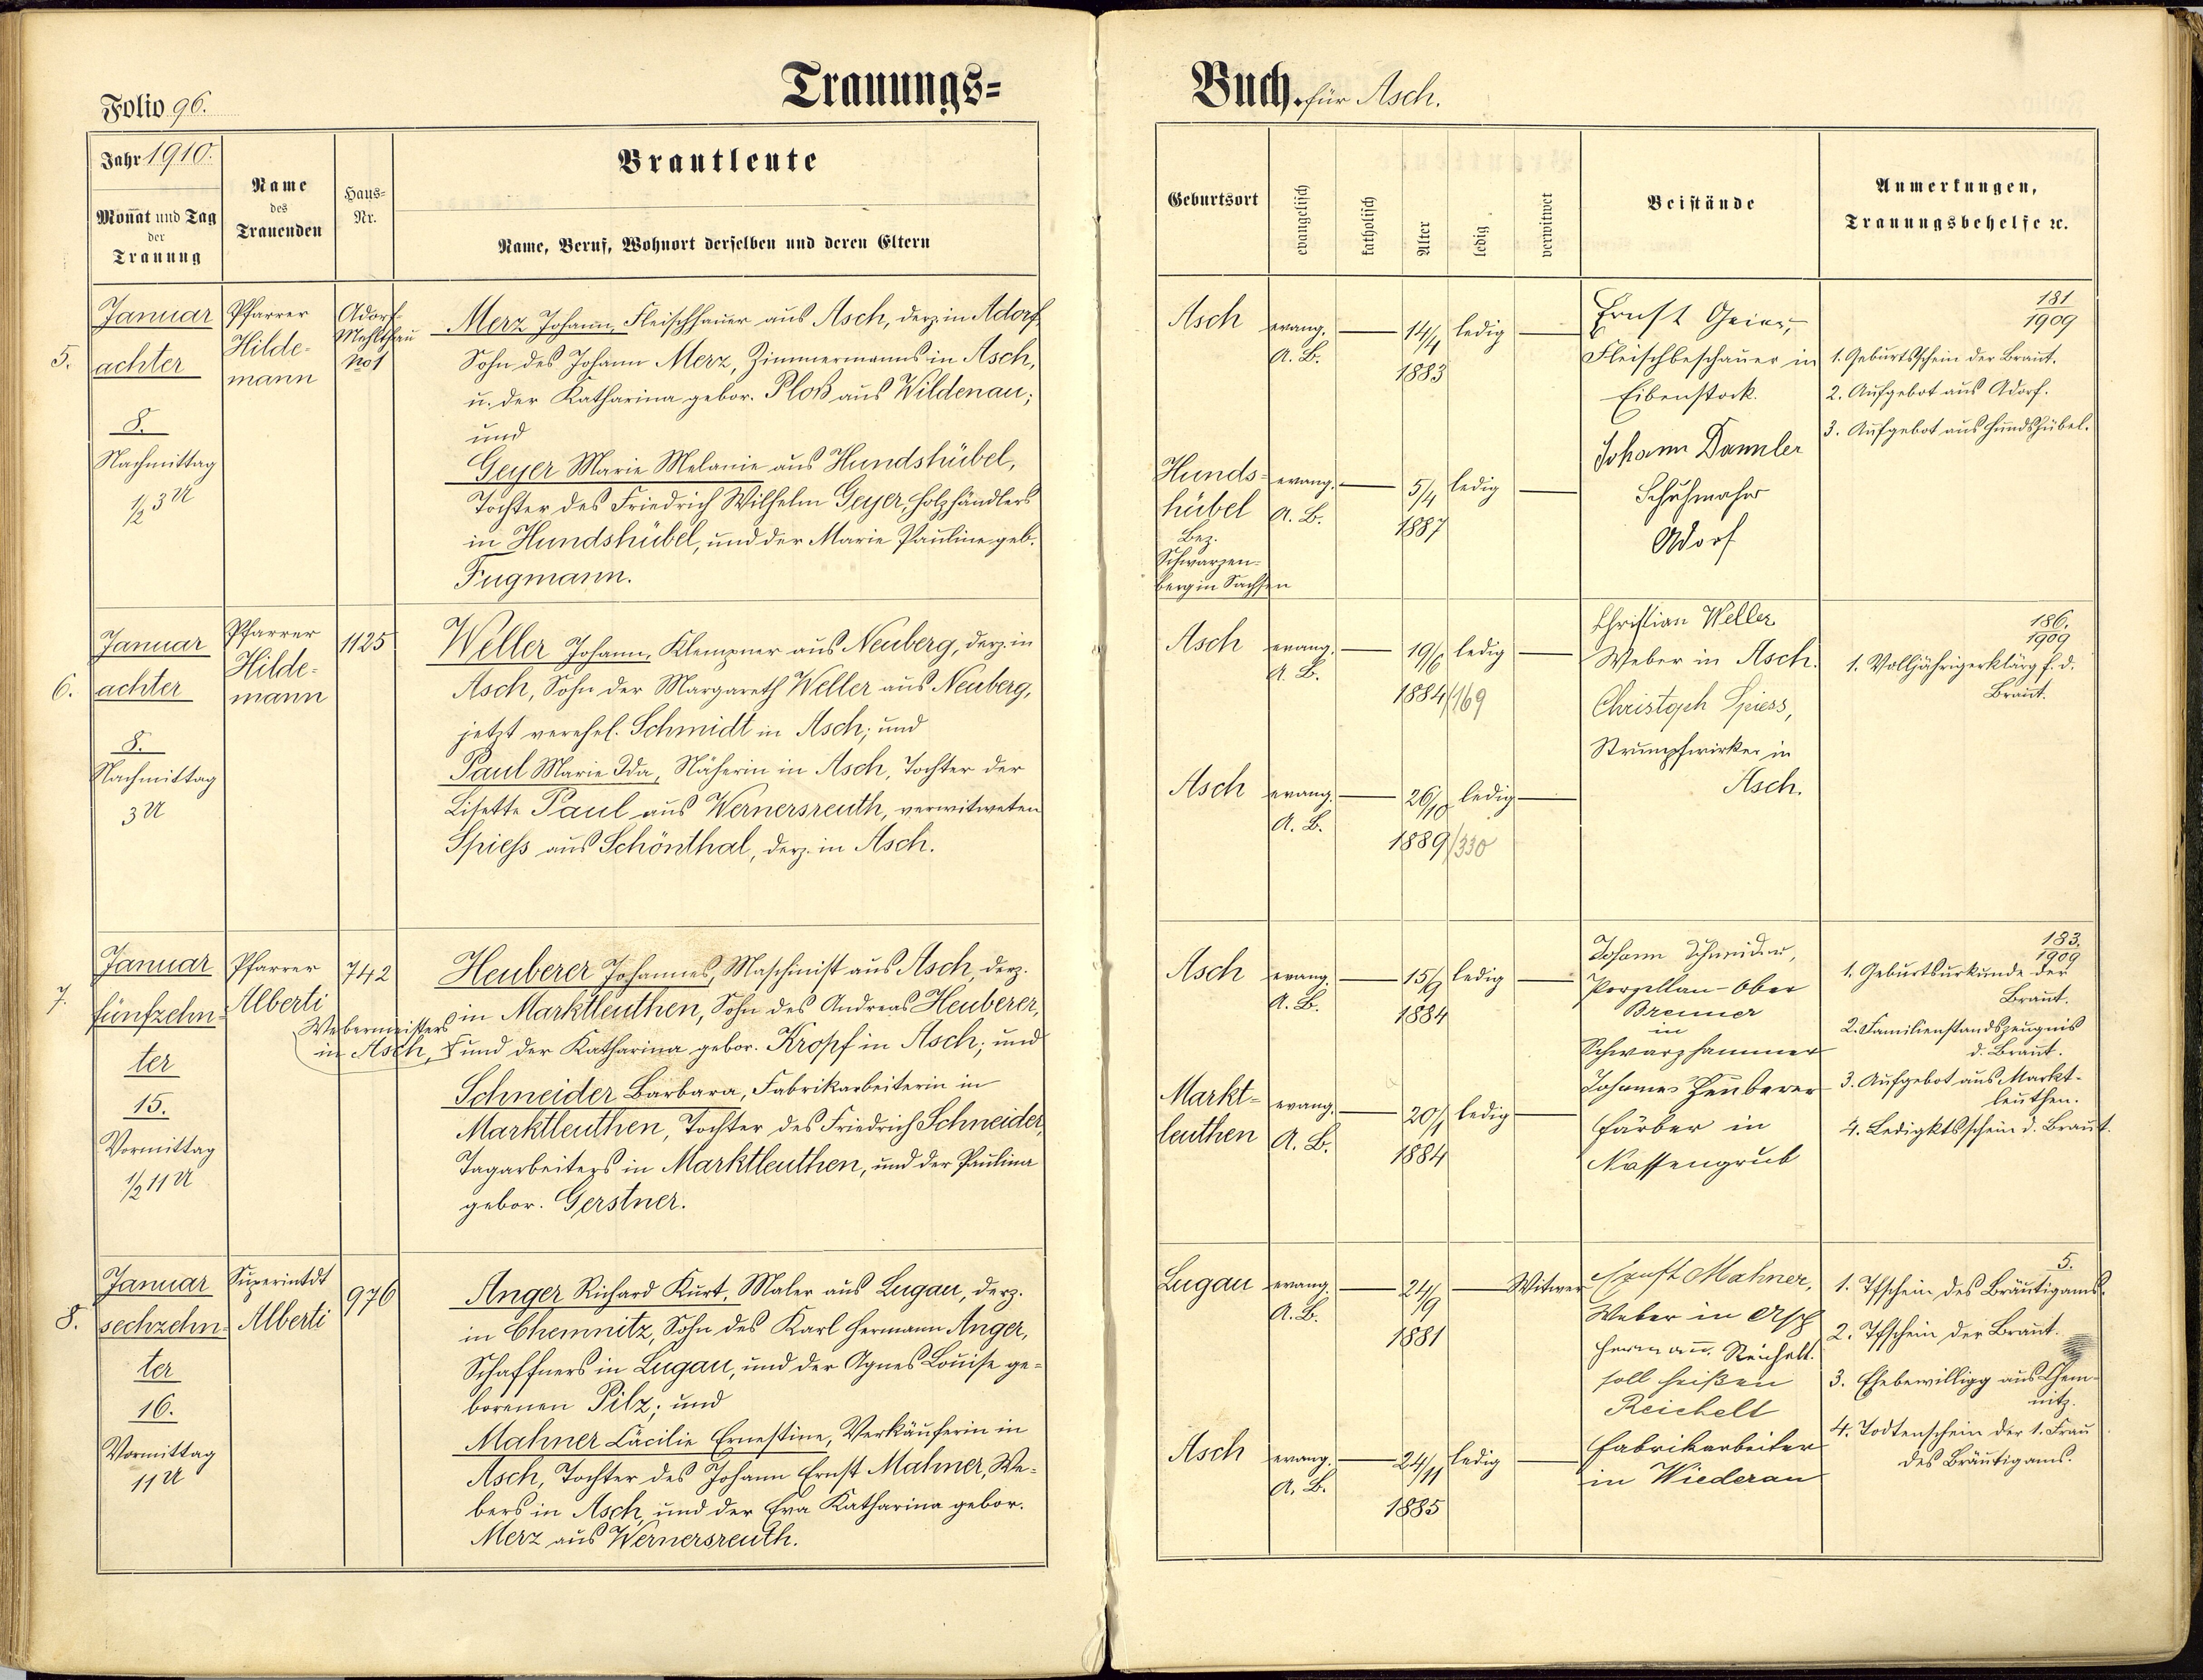 Folio 96.
Trauungs=
Jahr 1910.
Monat und Tag
der
Trauung
Name
des
Trauenden
Haus=
Nr.
Brautleute
Name, Beruf, Wohnort derselben und deren Eltern
5.
Januar
achter
8.
Nachmittag
1/2 3 U
Pfarrer
Hilde-
mann
Adorf
Mehltheu
No 1
Merz Johann, Fleischhauer aus Asch, derz. in Adorf,
Sohn des Johann Merz, Zimmermanns in Asch,
u. der Katharina gebor. Ploß aus Wildenau;
und
Geyer Marie Melanie aus Hundshübel,
Tochter des Friedrich Wilhelm Geyer, Holzhändlers
in Hundshübel, und der Marie Pauline geb.
Fugmann.
6.
Januar
achter
8.
Nachmittag
3 U
Pfarrer
Hilde-
mann
1125
Weller Johann, Klempner aus Neuberg, derz. in
Asch, Sohn der Margareth Weller aus Neuberg,
jetzt verehel. Schmidt in Asch; und
Paul Marie Ida, Näherin in Asch, Tochter der
Lisette Paul aus Wernersreuth, verwitweten
Spiess aus Schönthal, derz. in Asch.
7.
Januar
fünfzehn-
ter
15.
Vormittag
1/2 11 U
Pfarrer
Alberti
742
Heuberer Johannes, Maschinist aus Asch, derz.
in Marktleuthen, Sohn des Andreas Heuberer,
Webermeisters
in Asch,
und der Katharina gebor. Kropf in Asch; und
Schneider Barbara, Fabrikarbeiterin in
Marktleuthen, Tochter des Friedrich Schneider,
Tagarbeiters in Marktleuthen, und der Paulina
gebor. Gerstner.
8.
Januar
sechzehn-
ter
16.
Vormittag
11 U
Superintdt
Alberti
976
Anger Richard Kurt, Maler aus Lugau, derz.
in Chemnitz, Sohn des Karl Hermann Anger,
Schaffners in Lugau, und der Agnes Louise ge-
borenen Pilz; und
Mahner Cäcilie Ernestine, Verkäuferin in
Asch, Tochter des Johann Ernst Mahner, We-
bers in Asch, und der Eva Katharina gebor.
Merz aus Wernersreuth.
Buch. für Asch.
Geburtsort
evangelisch
katholisch
Alter
ledig
verwitwet
Beistände
Anmerkungen,
Trauungsbehelfe ꝛc.
Asch
evang.
A. B.
14/4
1883
ledig
Hunds-
hübel
Bez.
Schwarzen-
berg in Sachsen
evang.
A. B.
5/4
1887
ledig
Ernst Geier,
Fleischbeschauer in
Eibenstock.
Johann Dannler
Schuhmacher
Adorf
181
1909
1. Geburtsschein der Braut.
2. Aufgebot aus Adorf.
3. Aufgebot aus Hundshübel.
Asch
evang.
A. B.
19/6
1884/169
ledig
Asch
evang.
A. B.
26/10
1889/330
ledig
Christian Weller
Weber in Asch.
Christoph Spiess,
Strumpfwirker in
Asch.
186.
1909
1. Volljährigerklärg f. d.
Braut.
Asch
evang.
A. B.
15/9
1884
ledig
Markt-
leuthen
evang.
A. B.
20/1
1884
ledig
Johann Schneider,
Porzellan-Ober
Brenner
in
Schwarzhammer
Johannes Heuberer
Färber in
Nassengrub
183.
1909
1. Geburtsurkunde der
Braut.
2. Familienstandszeugnis
d. Braut.
3. Aufgebot aus Markt-
leuthen.
4. Ledigktsschein d. Braut.
Lugau
evang.
A. B.
24/9
1881
Witwer
Asch
evang.
A. B.
24/11
1885
ledig
Ernst Mahner,
Weber in Asch
Hermann Reichelt.
soll heißen
Reichelt
Fabrikarbeiter
in Wiederau
5.
1. Tfschein des Bräutigams.
2. Tfschein der Braut.
3. Ehebewilligg aus Chem-
nitz.
4. Todtenschein der 1. Frau
des Bräutigams.